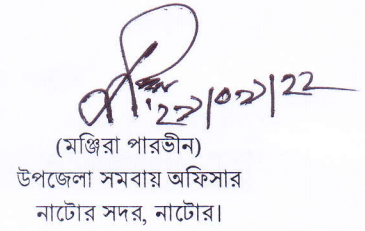 ২৯/০৯/২২
(মঞ্জিরা পারভীন)
উপজেলা সমবায় অফিসার
নাটোর সদর, নাটোর।